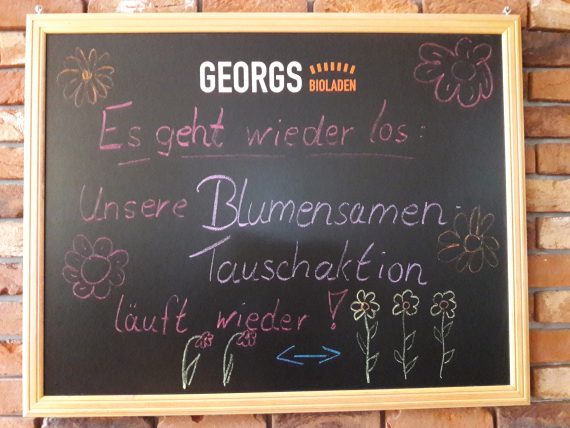 GEORGS BIOLADEN
Es geht wieder los:
Unsere Blumensamen-
Tauschaktion
läuft wieder!